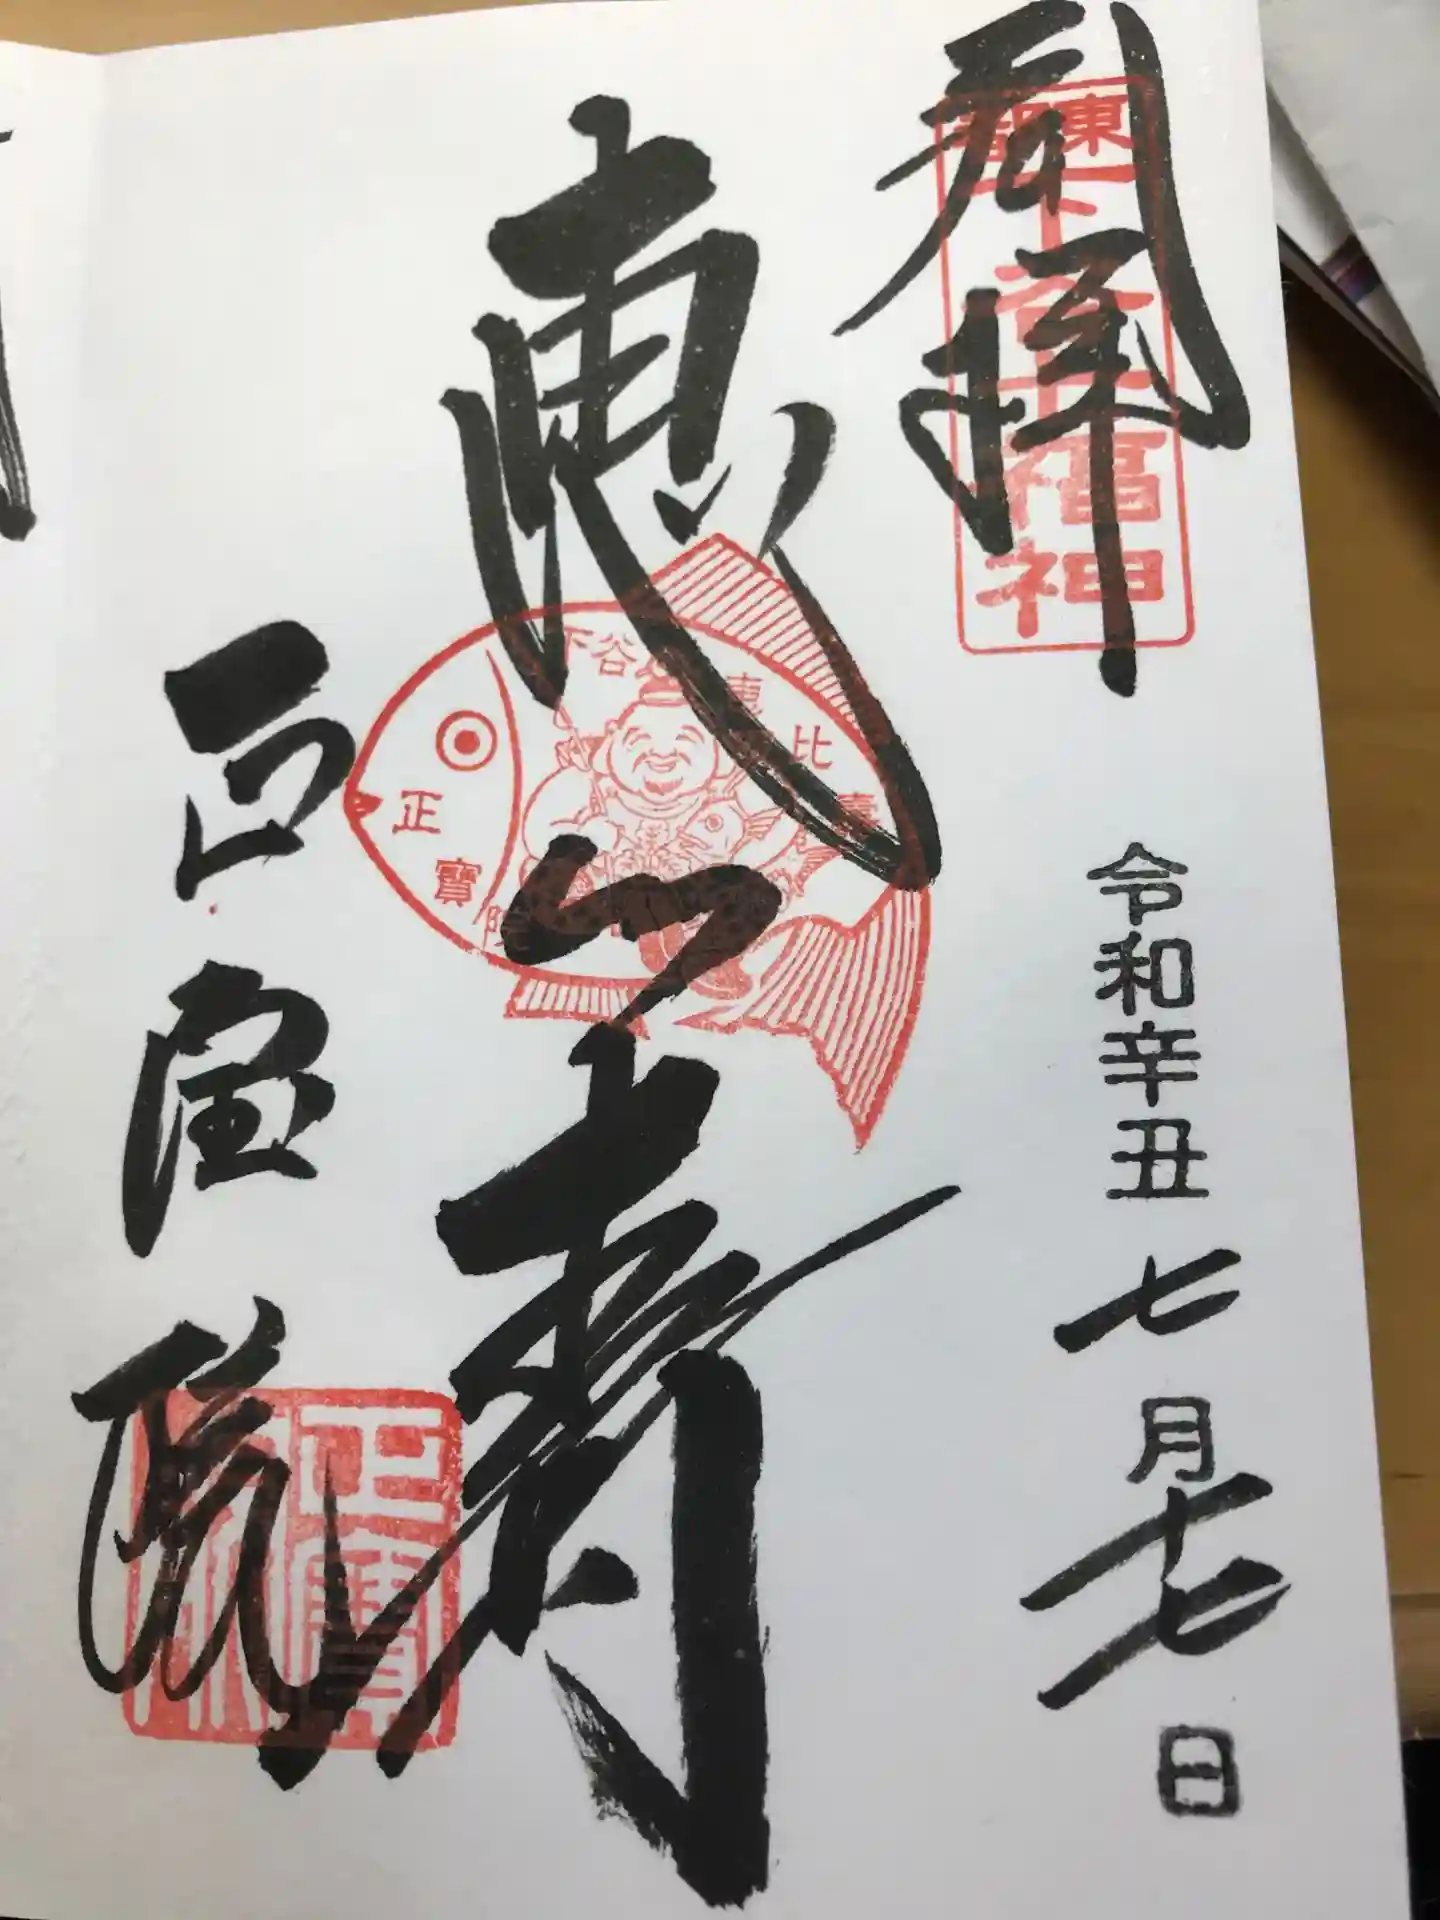 奉拝
東都
下谷七福神
令和辛丑七月七日
恵比寿
下谷恵比寿
正寶院
正宝院
正寶院印